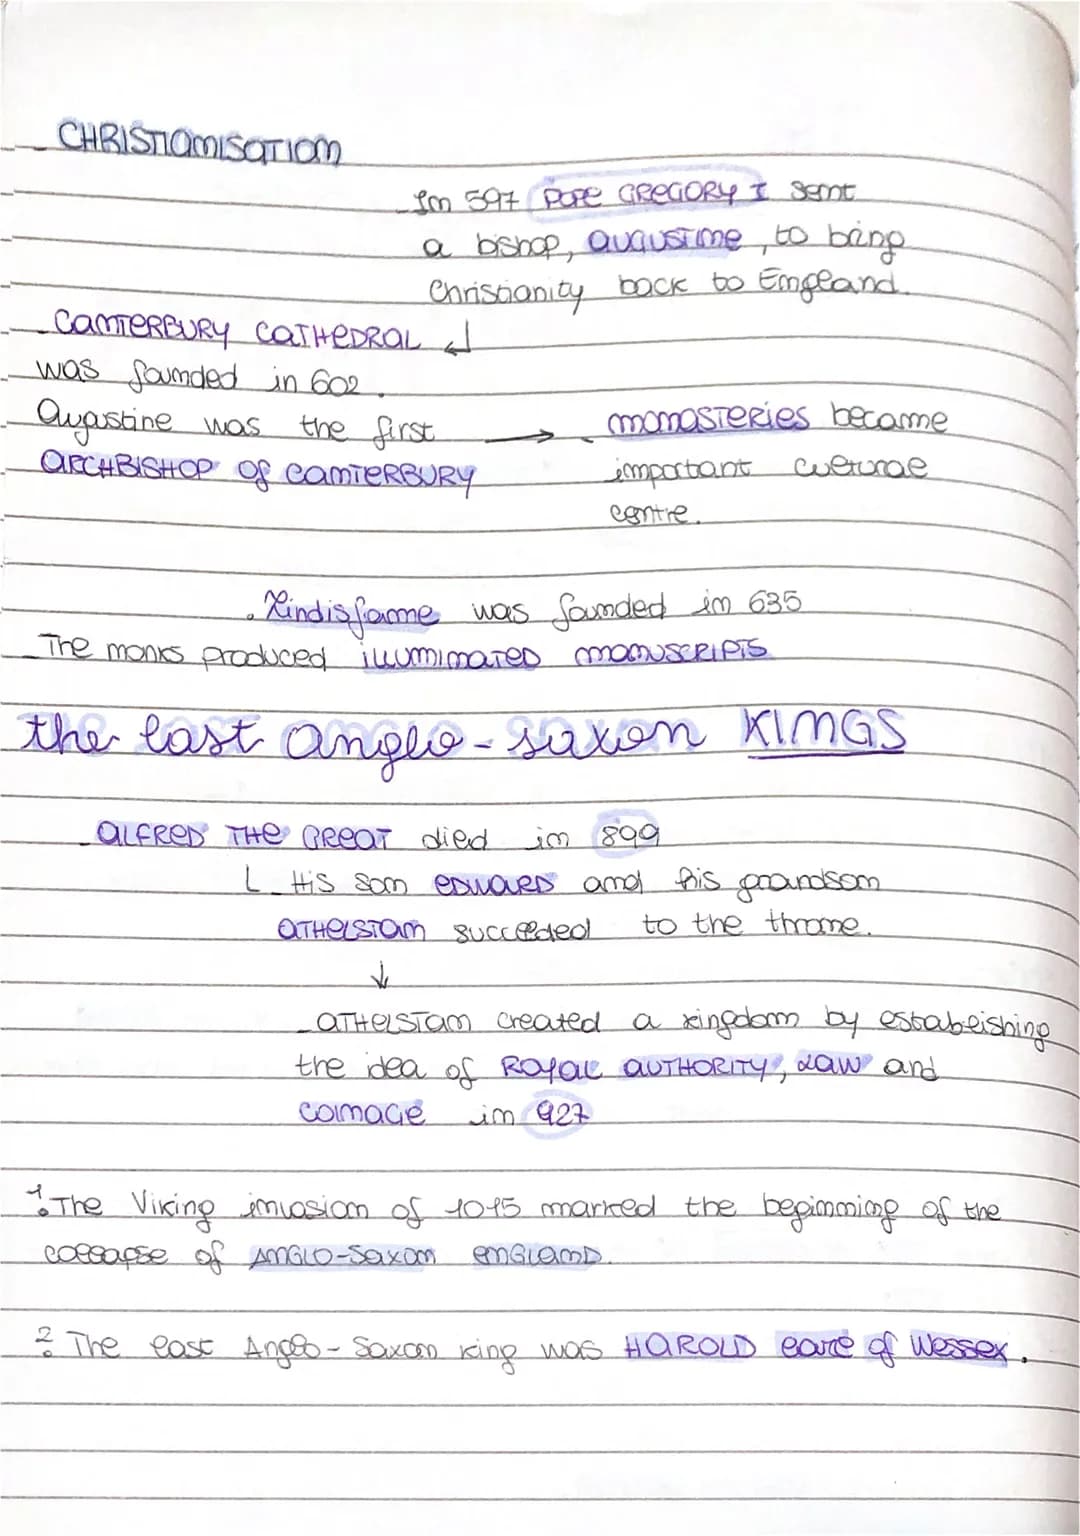 CHRISTIANISATION
In 597 POPE GREGORY I sent
a bishop, AUGUSTINE, to bring
Christianity back to England.
CANTERBURY CATHEDRAL ↲
was founded in 602.
Augustine was the first → . MONASTERIES became
ARCHBISHOP OF CANTERBURY important cultural
centre.
. Lindisfarne was founded in 635
The monks produced ILLUMINATED MANUSCRIPTS
the last anglo-saxon KINGS
ALFRED THE GREAT died in 899
L His son EDWARD and his grandson
ATHELSTAN succeeded to the throne.
↓
ATHELSTAN created a kingdom by establishing
the idea of ROYAL AUTHORITY, LAW and
COINAGE in 927
1. The Viking invasion of 1015 marked the beginning of the
collapse of ANGLO-SAXON ENGLAND.
2. The last Anglo-Saxon king was HAROLD earl of Wessex.